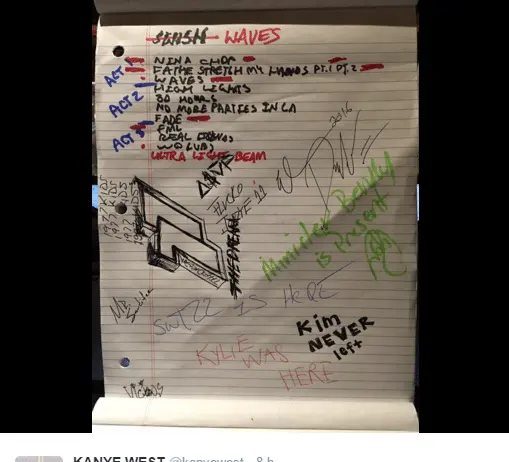 WAVES
ACT 1
NINA CHOP
FATHE STRETCH MY HANDS PT.1 PT.2
WAVES
ACT 2
HIGH LIGHTS
30 HOURS
NO MORE PARTIES IN LA
FADE
ACT 3
FML
REAL FRIENDS
WOLVES
ULTRA LIGHT BEAM
2016
1977 KIDS
1977 KIDS
1977
1977 KIDS
Minister Bentley
is Present
SWIZZ IS HERE
Kim
NEVER
left
KYLIE
WAS
HERE
KANYE WEST @kanyewest · 8 h